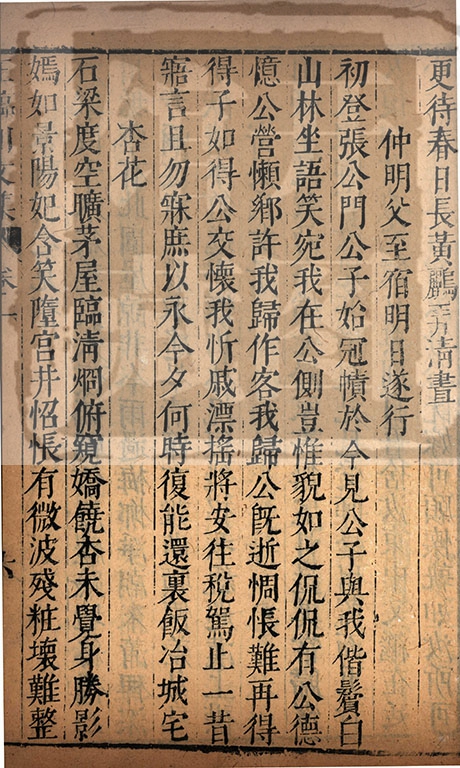 更待春日長黃鸝弄清晝
仲明父至宿明日遂行
初登張公門公子始冠幘於今見公子與我偕鬢白
山林坐語笑宛我在公側豈惟貌如之侃侃有公德
憶公營懶鄉許我歸作客我歸公旣逝惆悵難再得
得子如得公交懷我忻戚漂搖將安往稅駕止一昔
寤言且勿寐庶以永今夕何時復能還裹飯冶城宅
杏花
石梁度空曠茅屋臨清烱俯窺嬌饒杏未覺身勝影
嫣如景陽妃含笑墮宮井怊悵有微波殘粧壞難整